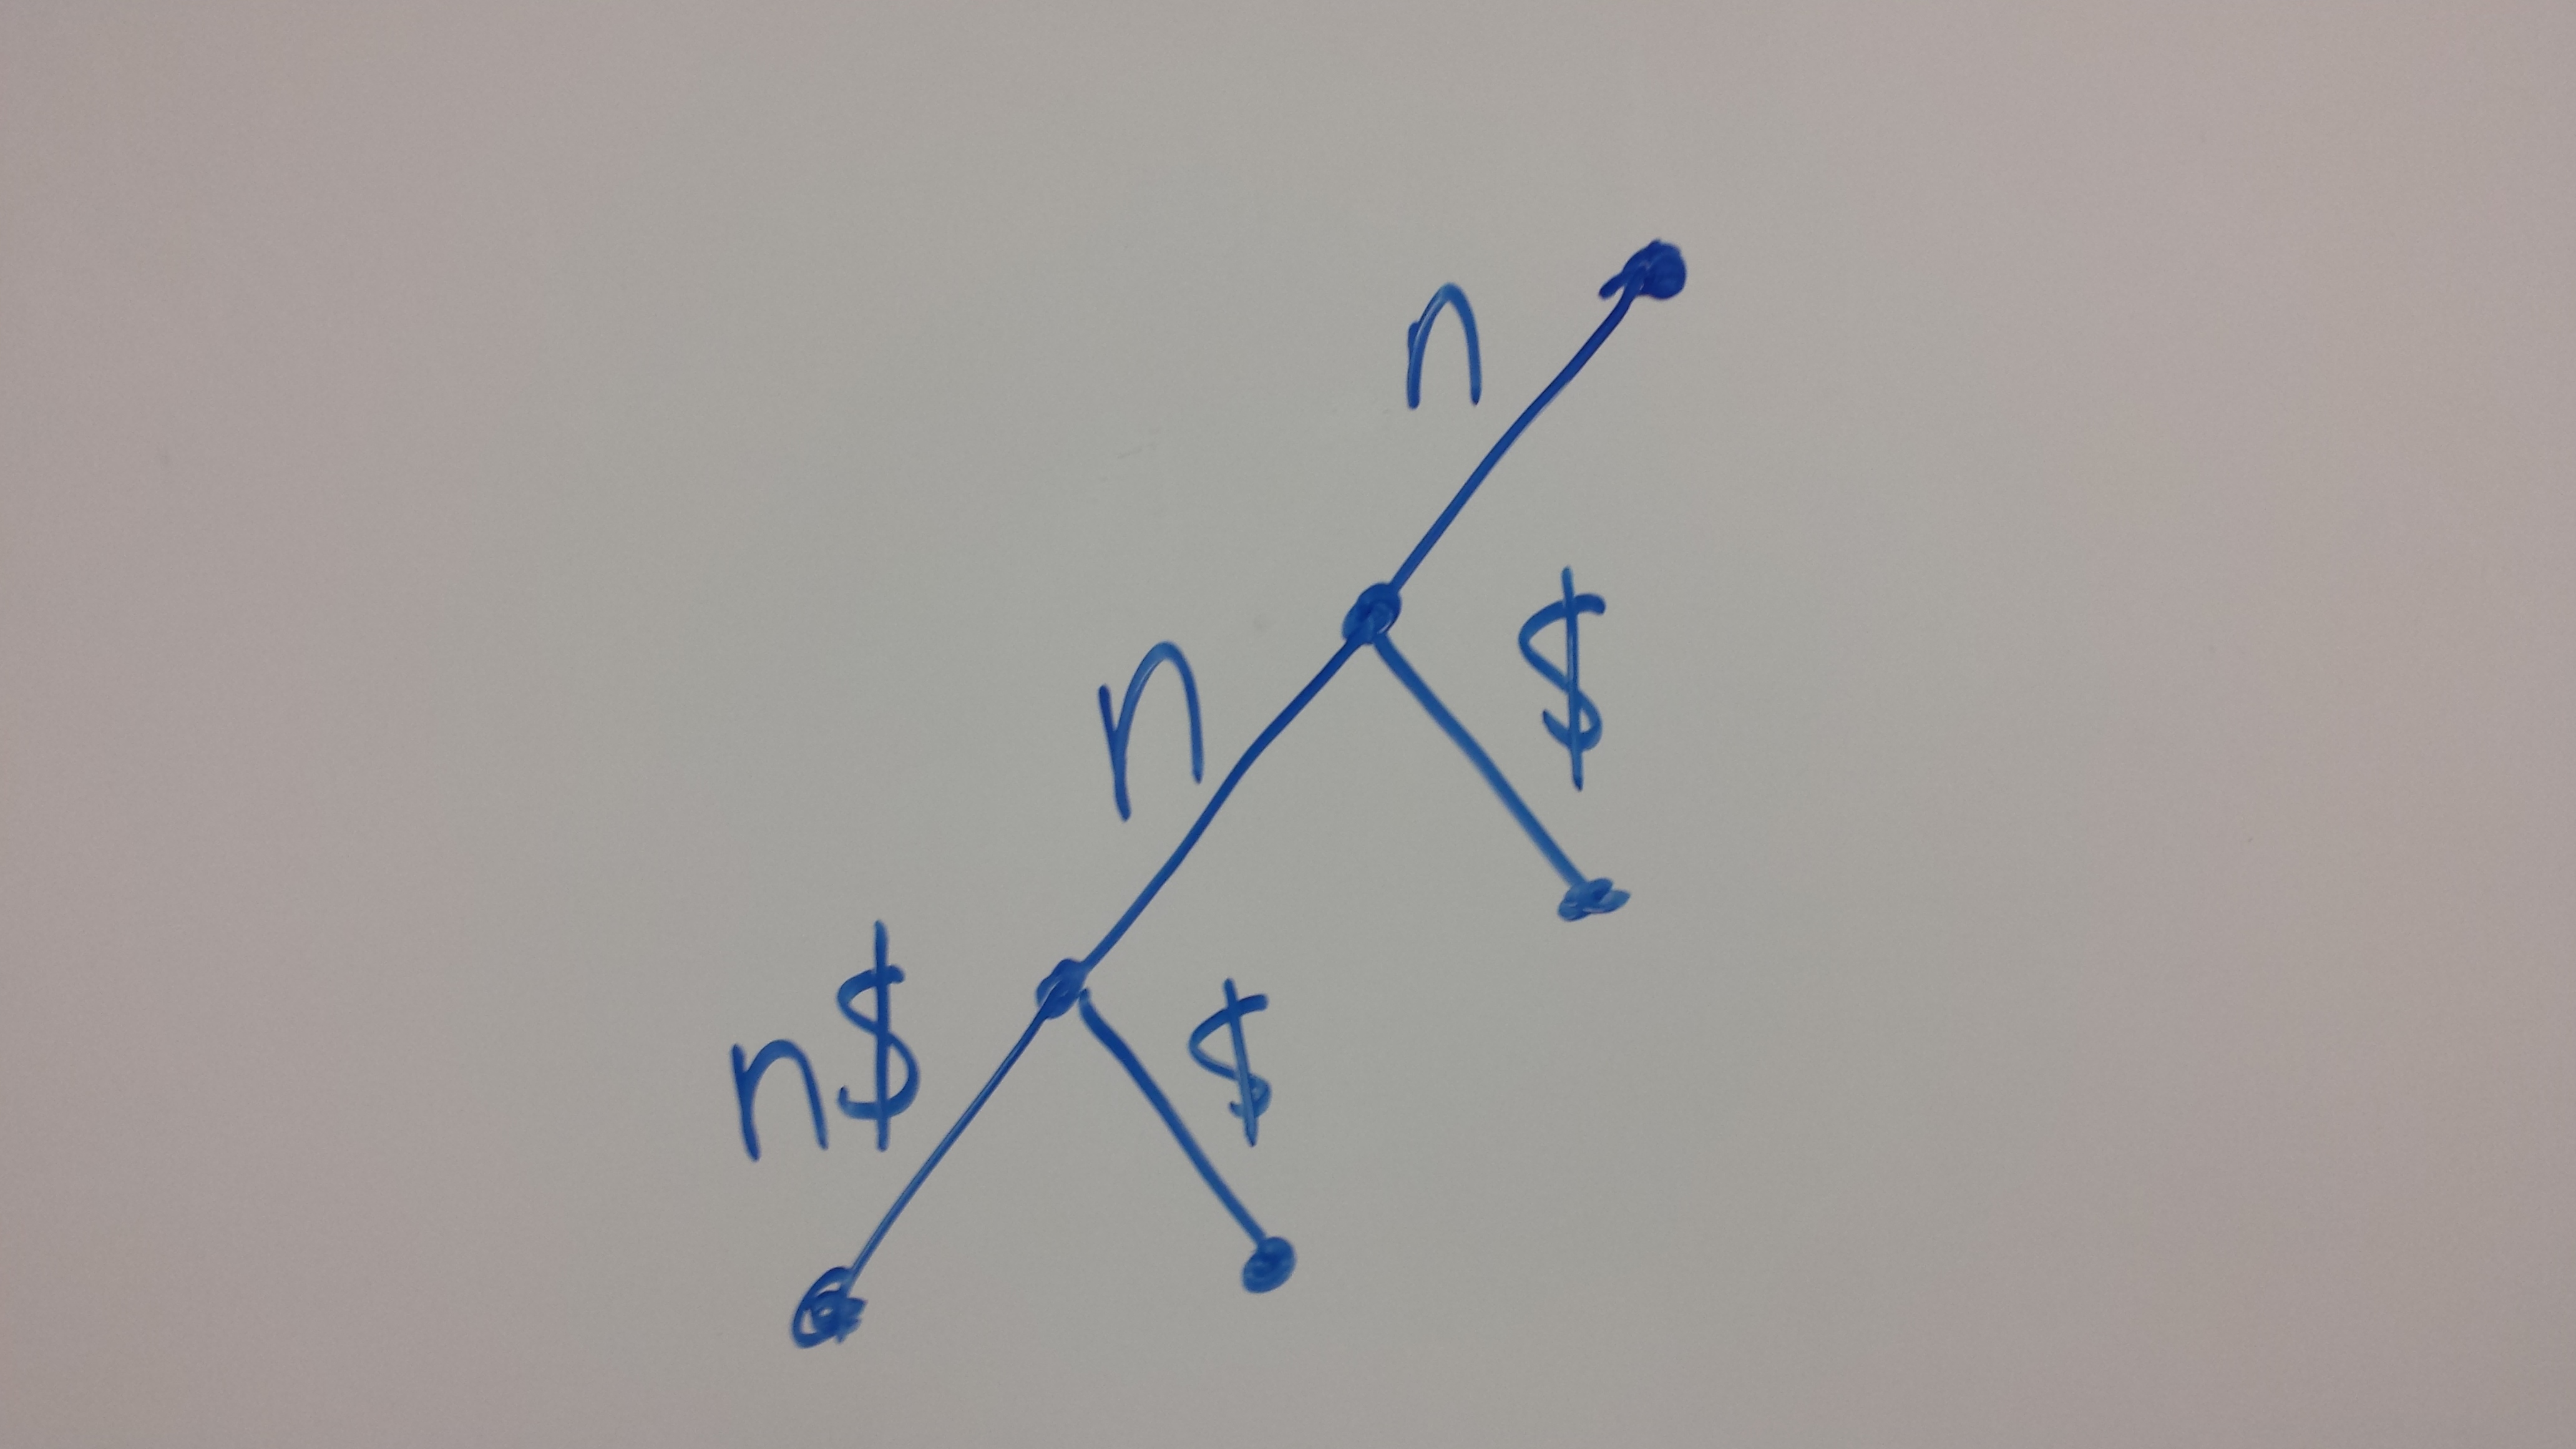 n
$
n
$
n$